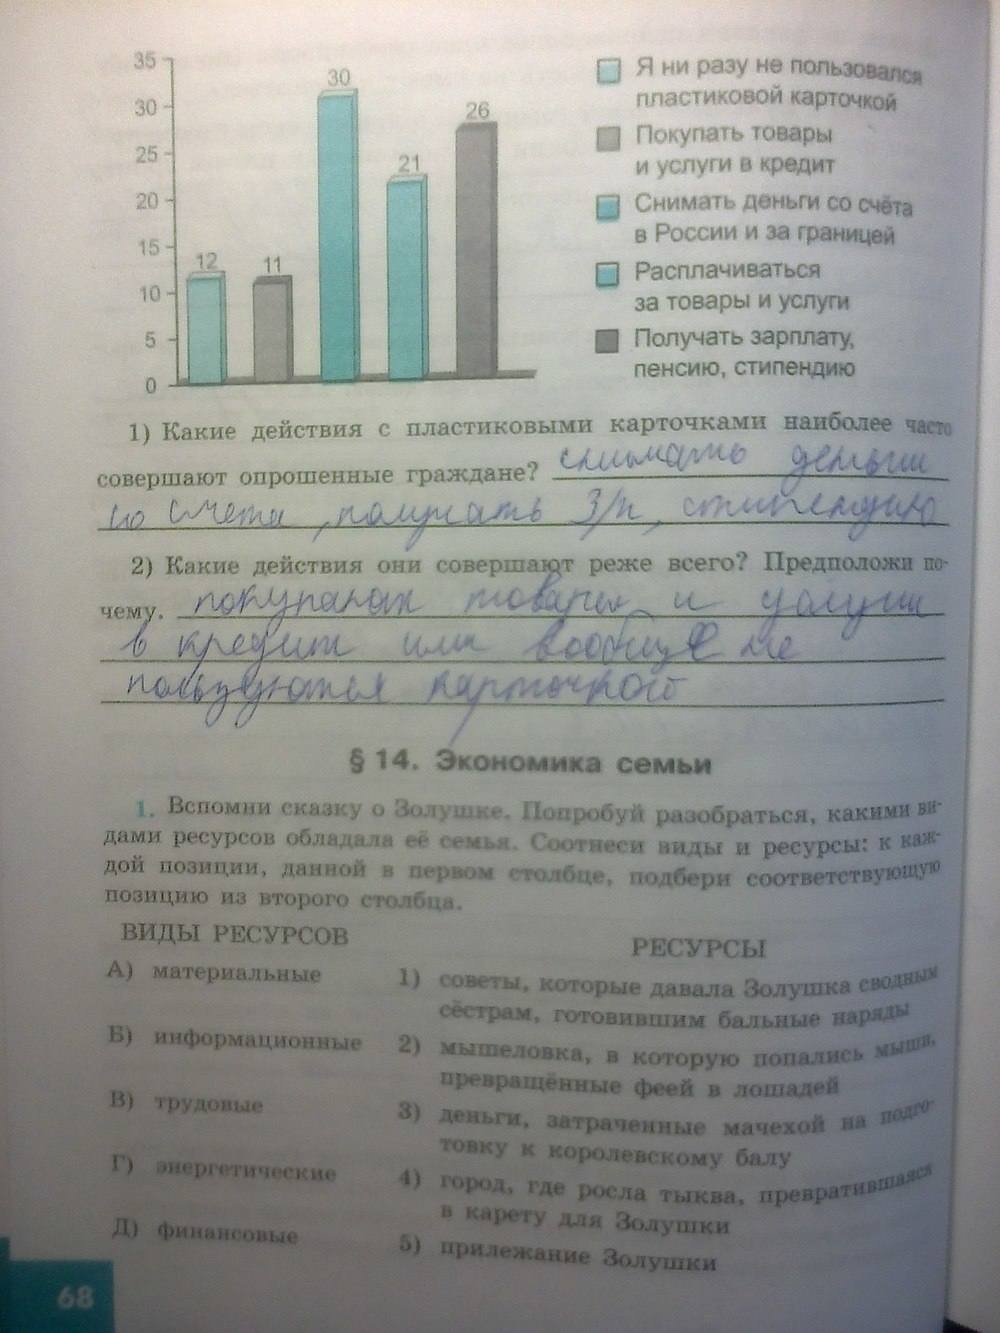 35
30
25
20
15
10
5
0
12
11
30
21
26
Я ни разу не пользовался
пластиковой карточкой
Покупать товары
и услуги в кредит
Снимать деньги со счёта
в России и за границей
Расплачиваться
за товары и услуги
Получать зарплату,
пенсию, стипендию
1) Какие действия с пластиковыми карточками наиболее часто
совершают опрошенные граждане? снимать деньги
со счета, получать З/п, стипендию
2) Какие действия они совершают реже всего? Предположи по-
чему. покупают товары и услуги
в кредит или вообще не
пользуются карточкой
§ 14. Экономика семьи
1. Вспомни сказку о Золушке. Попробуй разобраться, какими ви-
дами ресурсов обладала её семья. Соотнеси виды и ресурсы: к каж-
дой позиции, данной в первом столбце, подбери соответствующую
позицию из второго столбца.
ВИДЫ РЕСУРСОВ
А) материальные
Б) информационные
В) трудовые
Г) энергетические
Д) финансовые
РЕСУРСЫ
1) советы, которые давала Золушка сводным
сёстрам, готовившим бальные наряды
2) мышеловка, в которую попались мыши,
превращённые феей в лошадей
3) деньги, затраченные мачехой на подго-
товку к королевскому балу
4) город, где росла тыква, превратившаяся
в карету для Золушки
5) прилежание Золушки
68